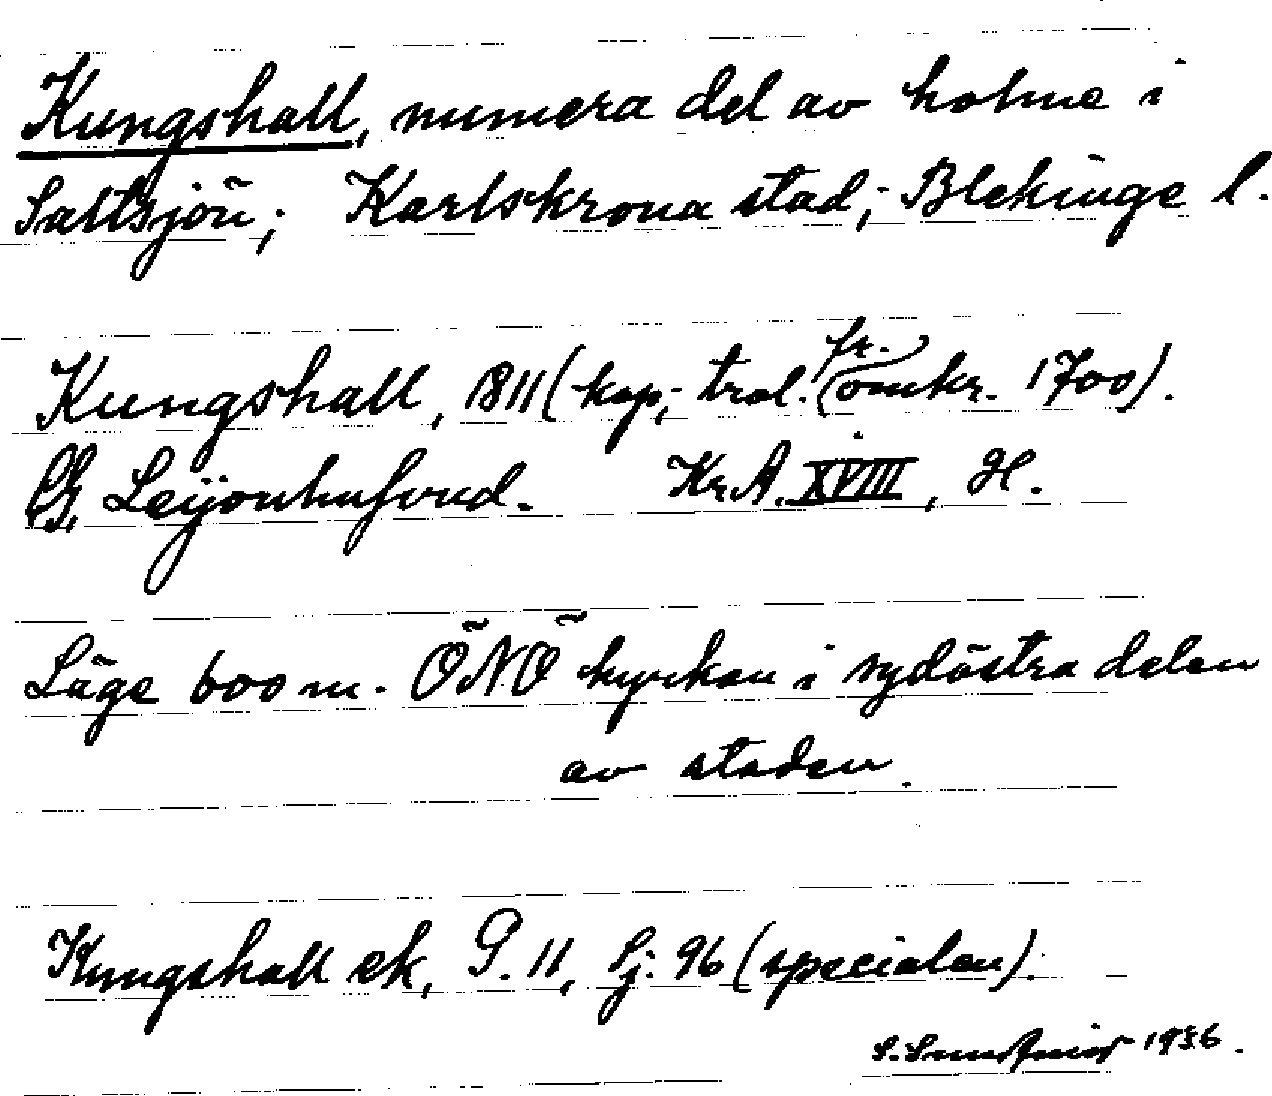 Kungshall, numera del av holme i
Saltsjön; Karlskrona stad; Blekinge l.
Kungshall, 1811 (kop; trol. fr. omkr. 1700).
G. Leijonhufvud. Kr.A. XVIII, H.
Läge 600 m. ÖNÖ kyrkan i sydöstra delen
av staden.
Kungshall ek, G. 11, Sj. 96 (specialen).
1936.